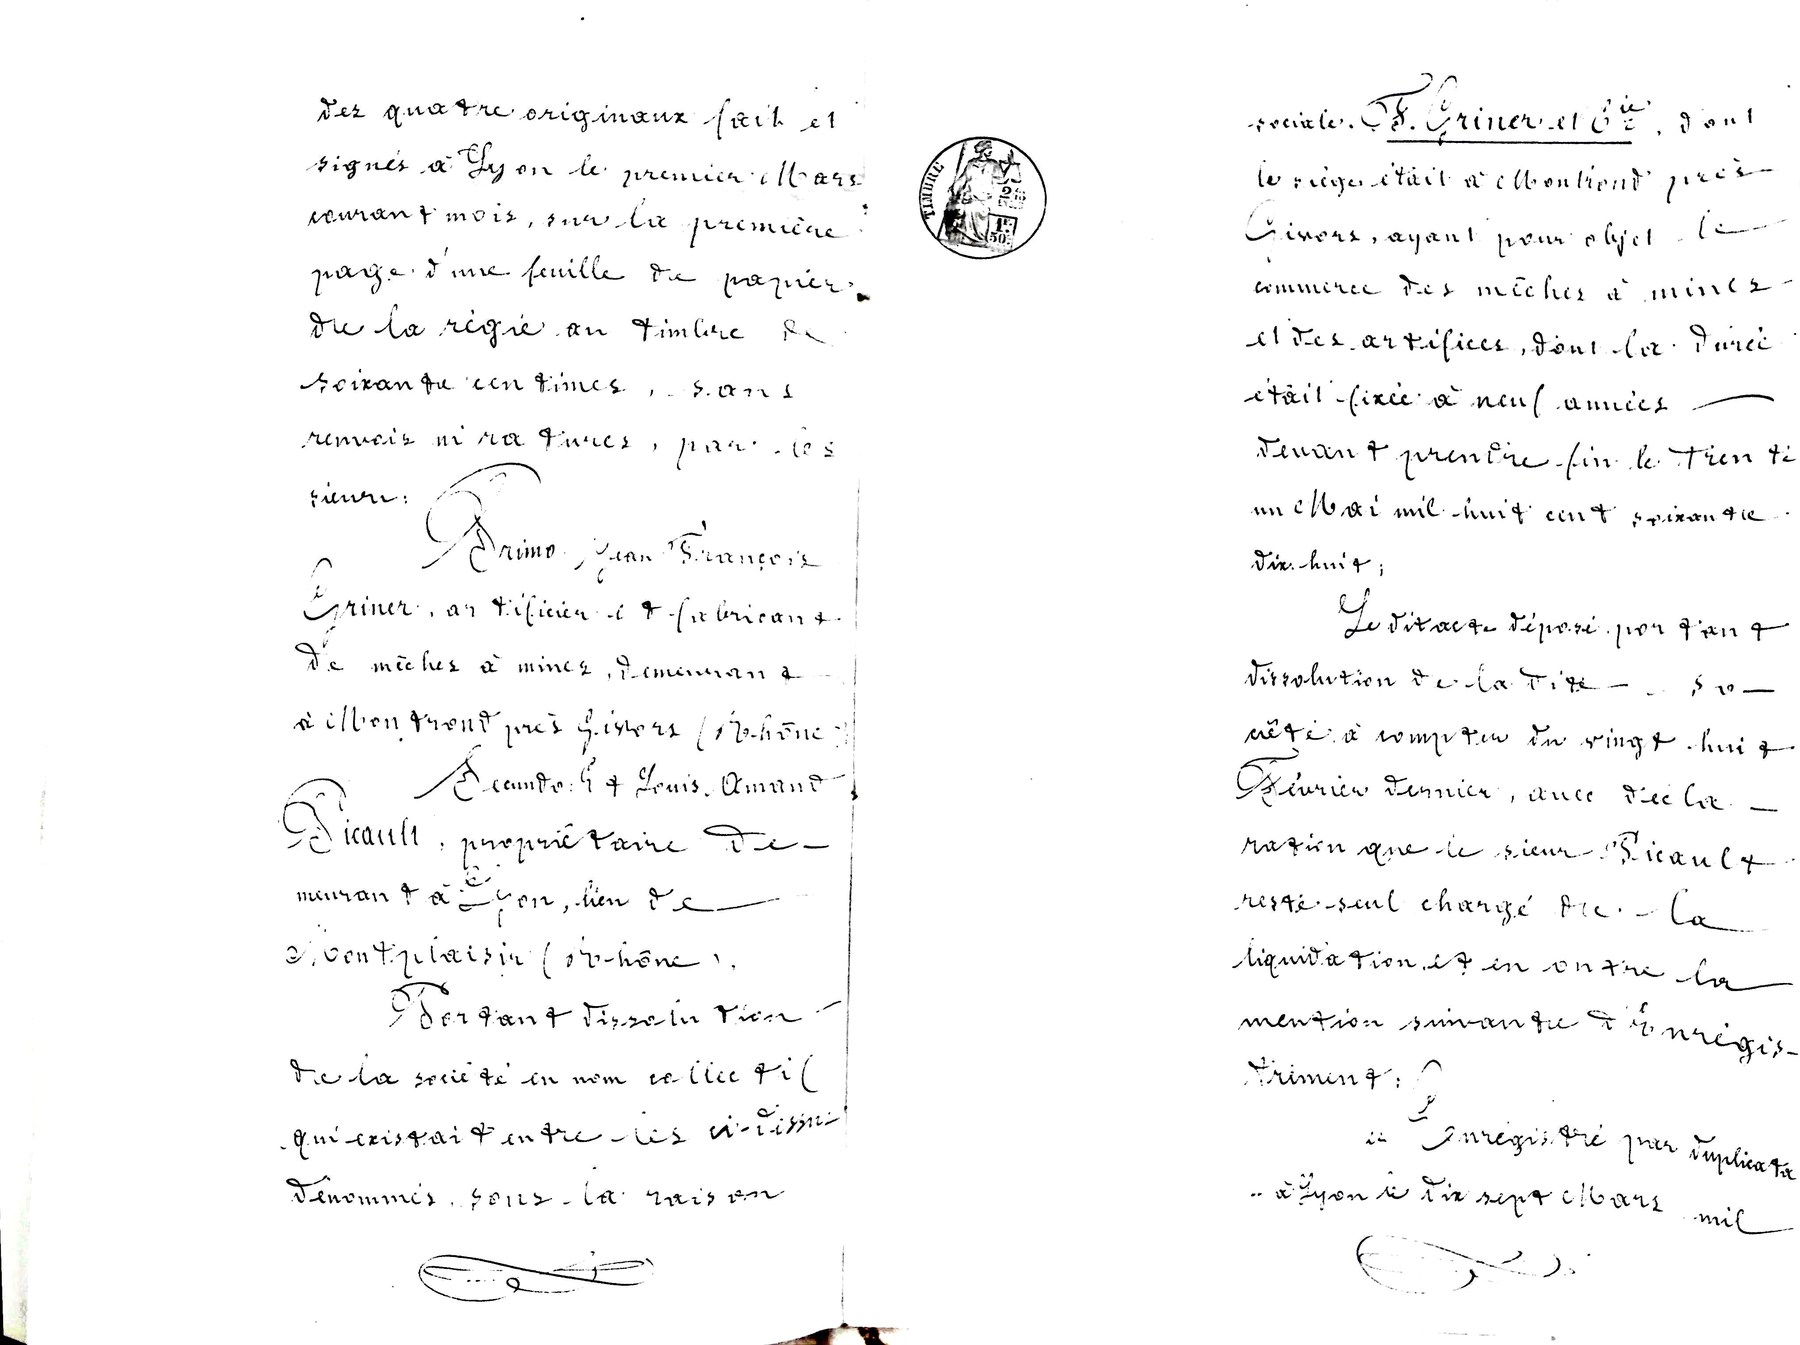 des quatre originaux fait et
signés à Lyon le premier Mars
courant mois, sur la première
page d'une feuille de papier
de la régie au timbre de
soixante centimes, sans
renvois ni ratures, par les
sieurs:
Primo Jean François
Griner, artificier et fabricant
de mèches à mines, demeurant
à Montrond près Givors (Rhône)
Secundo: Et Louis Amand
Picault, propriétaire de-
meurant à Lyon, lieu de
Montplaisir (Rhône).
Portant dissolution
de la société en nom collectif
qui existait entre les ci-dessus
dénommés, sous la raison
TIMBRE
50c
sociale F. Griner et Cie, dont
le siège était à Montrond près
Givors, ayant pour objet le
commerce des mèches à mines
et des artifices, dont la durée
était fixée à neuf années
devant prendre fin le trente
un Mai mil huit cent soixante
dix-huit;
Le dit acte déposé portant
dissolution de la dite so-
ciété à compter du vingt huit
Février dernier, avec décla-
ration que le sieur Picault
reste seul chargé de la
liquidation et en outre la
mention suivante d'Enrégis-
trement:
"Enrégistré par duplicata
"à Lyon le dix sept Mars mil